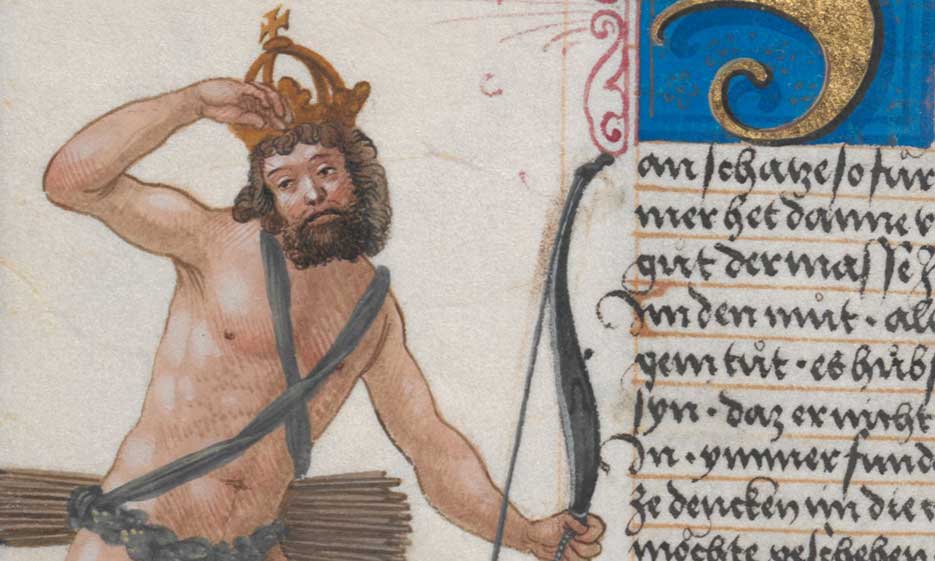 an schatze so für
mer het danne
gůt der masse
In den můt · al
gem tůt · es hüb
syn · daz er nicht
In · ymmer fund
ze dencken in die
möchte geschehen